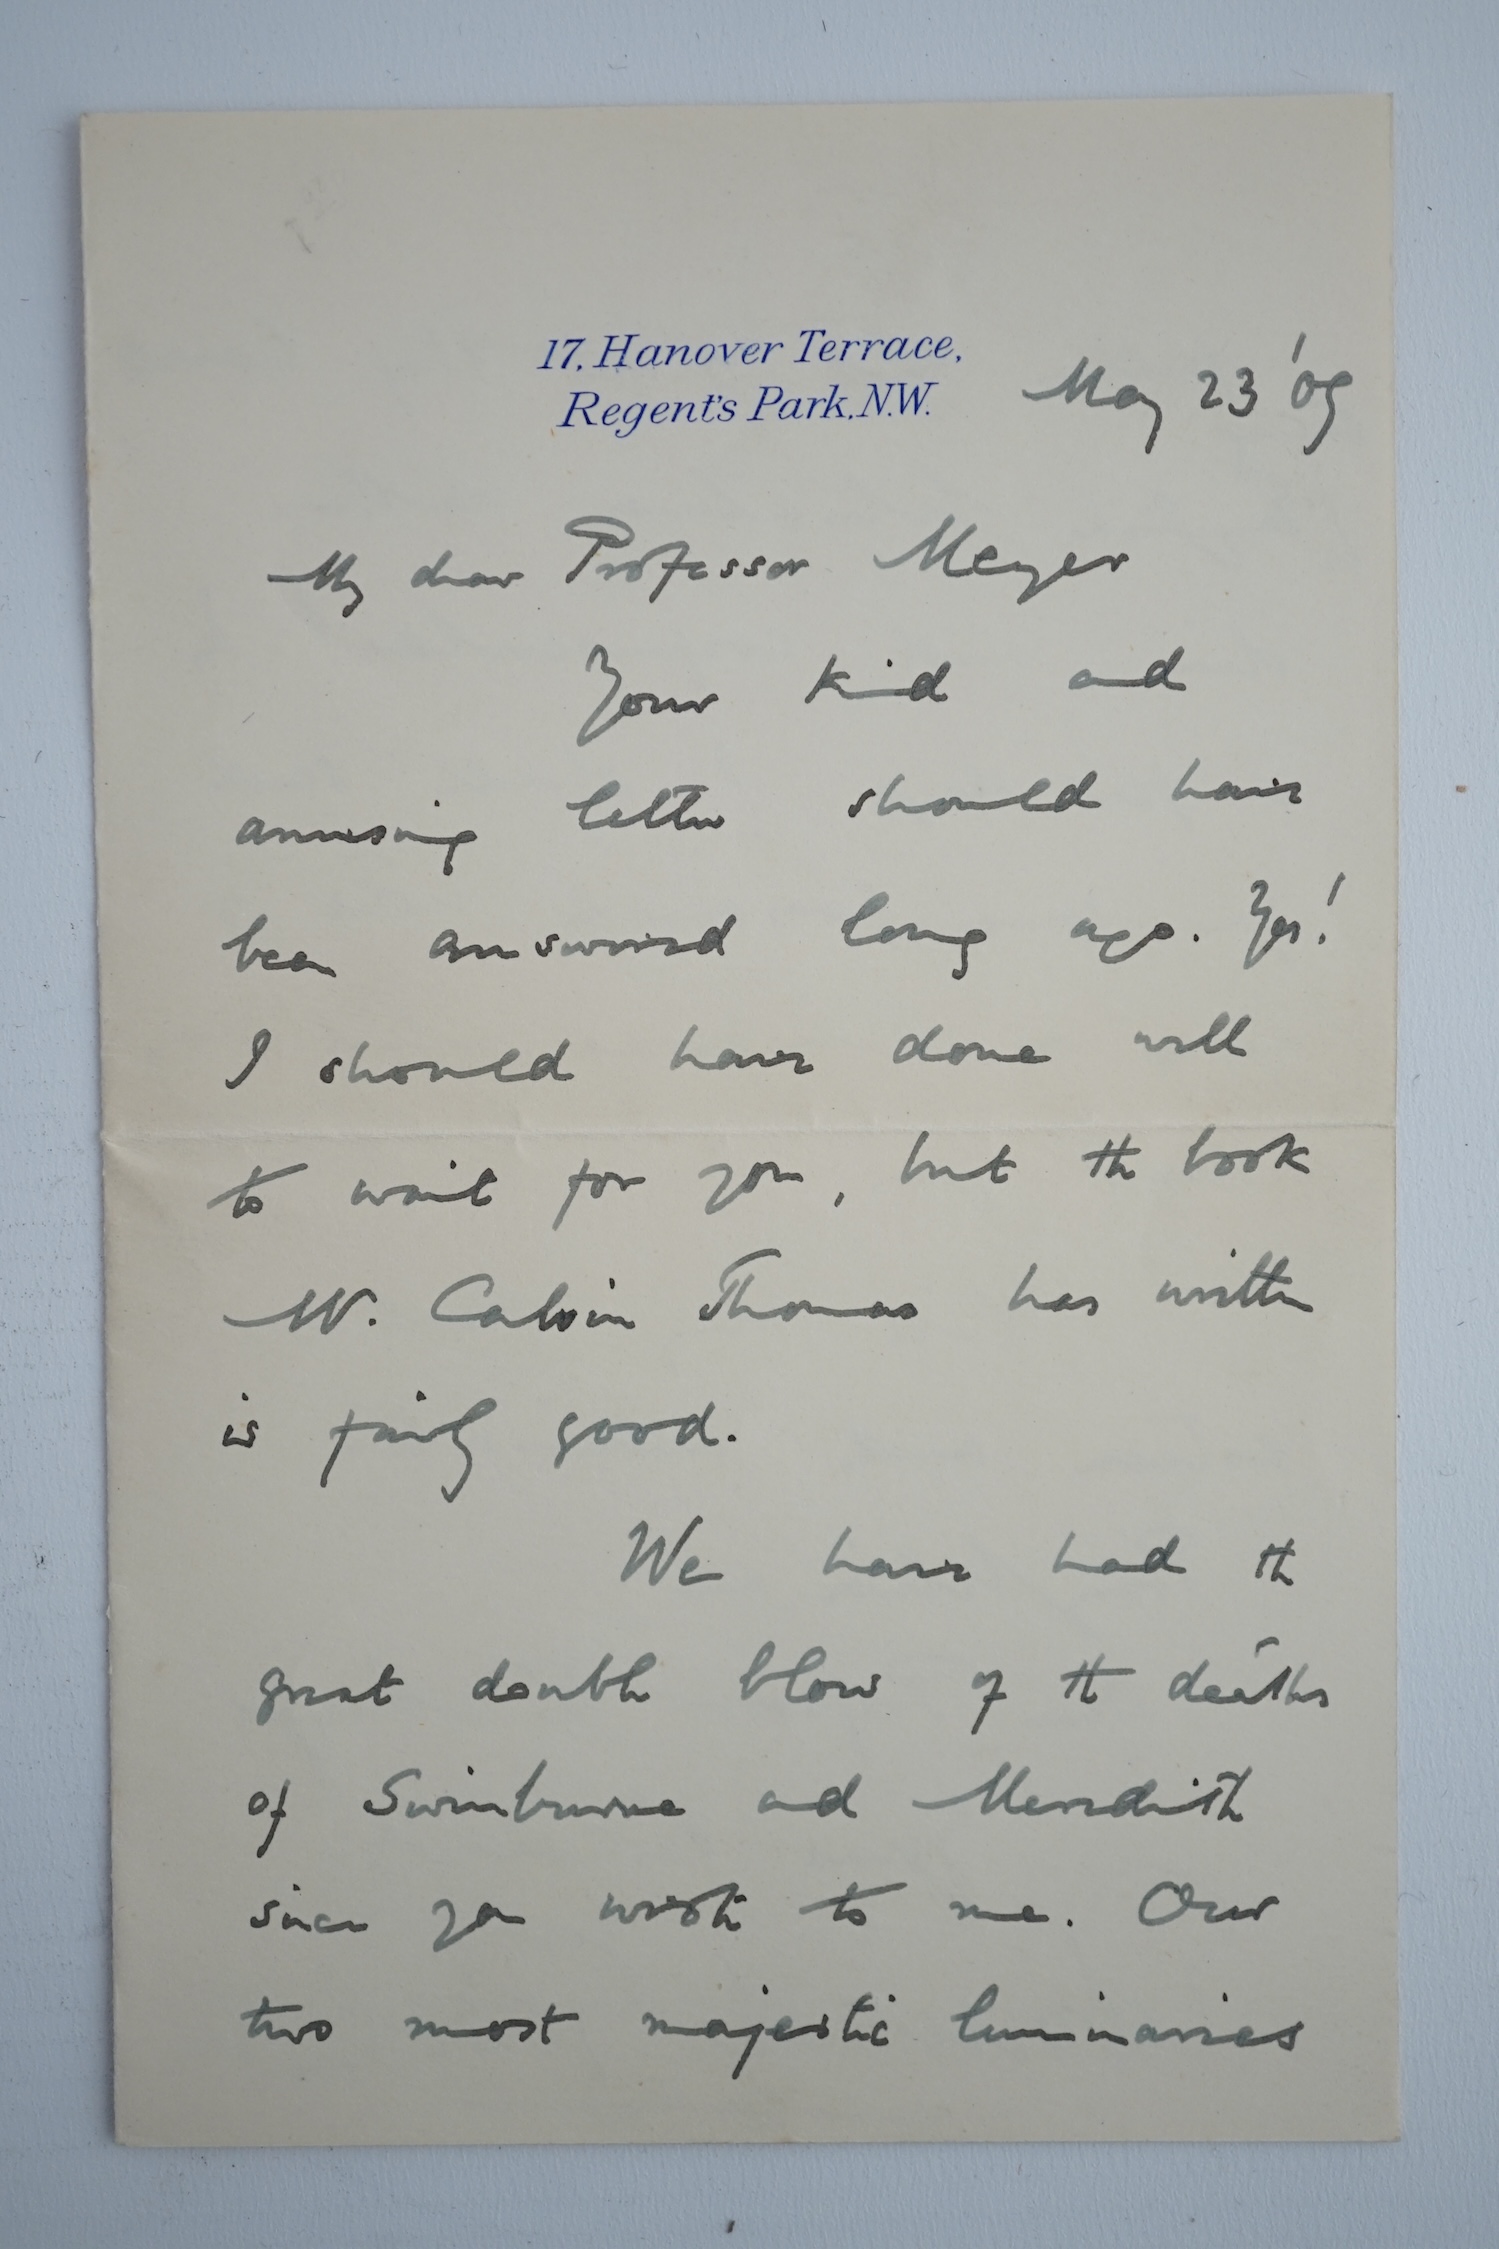 17, Hanover Terrace,
Regent's Park, N.W.
May 23 '09
My dear Professor Meyer
Your kind and
amusing letter should have
been answered long ago. Yes!
I should have done well
to wait for you, but the book
Mr. Calvin Thomas has written
is fairly good.
We have had the
great double blow of the deaths
of Swinburne and Meredith
since you wrote to me. Our
two most majestic luminaries